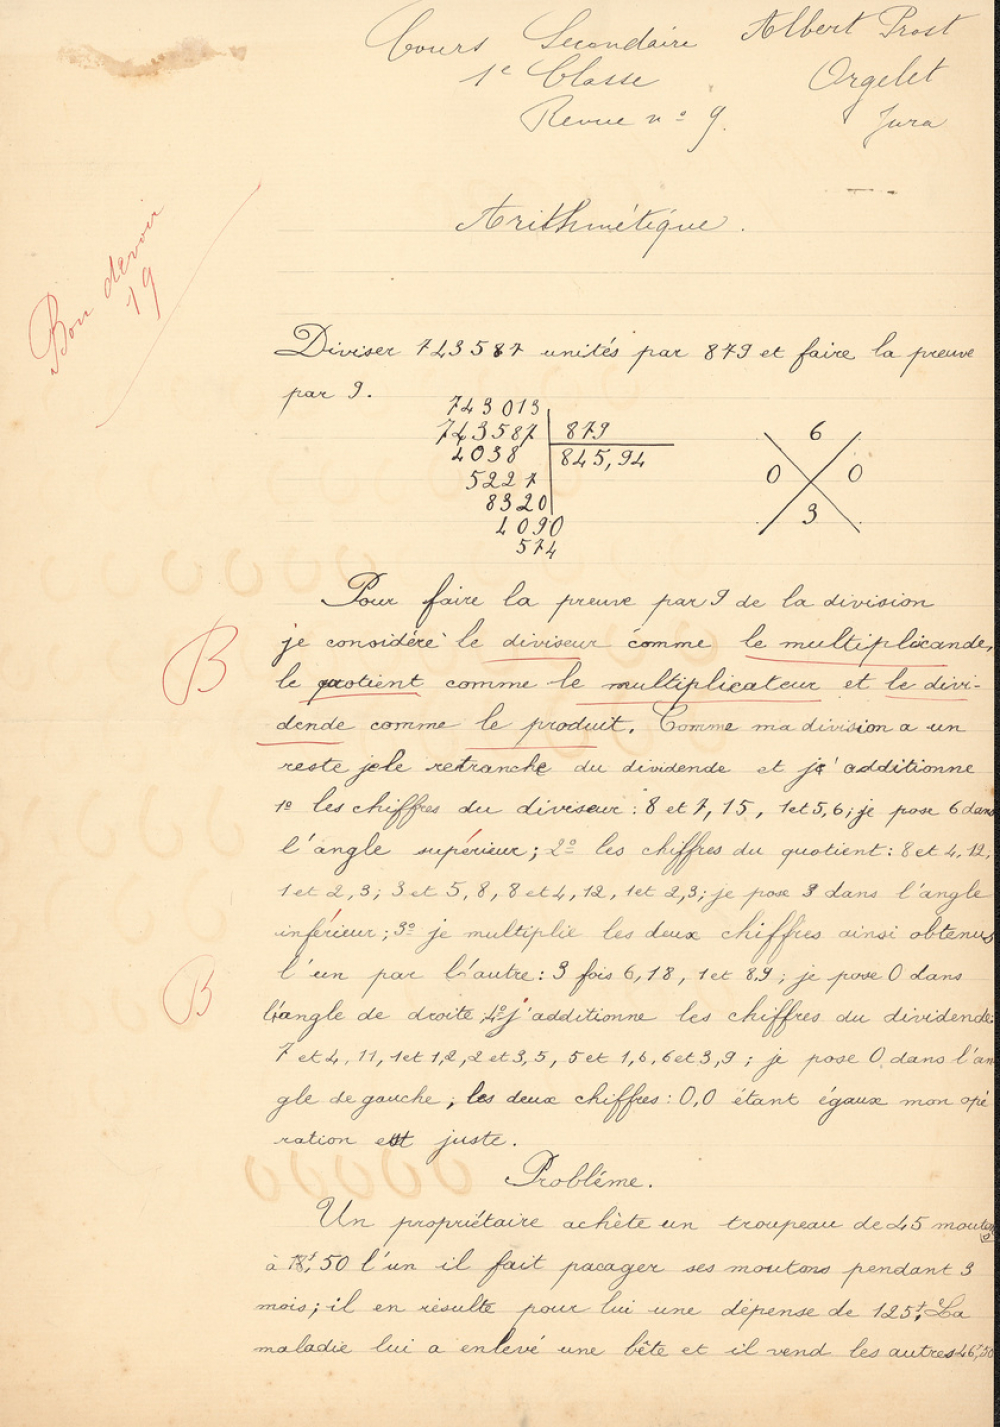 Cours Secondaire Albert Prost
1e Classe Orgelet
Revue nº 9. Jura
Arithmétique.
Bon devoir
19
Diviser 743587 unités par 879 et faire la preuve
par 9.
743013
743587 879
4038 845,94
5227
8320
4090
574
6
0 0
3
Pour faire la preuve par 9 de la division
B
je considére le diviseur comme le multiplicande,
le quotient comme le multiplicateur et le divi-
dende comme le produit. Comme ma division a un
reste je le retranche du dividende et j'additionne
1º les chiffres du diviseur : 8 et 7, 15, 1 et 5, 6; je pose 6 dans
l'angle supérieur; 2º les chiffres du quotient : 8 et 4, 12,
1 et 2, 3; 3 et 5, 8, 8 et 4, 12, 1 et 2, 3; je pose 3 dans l'angle
inférieur; 3º je multiplie les deux chiffres ainsi obtenus
B
l'un par l'autre : 3 fois 6, 18, 1 et 8, 9; je pose 0 dans
l'angle de droite; 4º j'additionne les chiffres du dividende:
7 et 4, 11, 1 et 1, 2, 2 et 3, 5, 5 et 1, 6, 6 et 3, 9; je pose 0 dans l'an
gle de gauche; les deux chiffres : 0,0 étant égaux mon opé
ration est juste.
Probléme.
Un propriétaire achète un troupeau de 45 moutons
à 18f,50 l'un il fait pacager ses moutons pendant 3
mois; il en résulte pour lui une dépense de 125f. La
maladie lui a enlevé une bête et il vend les autres 46f,50